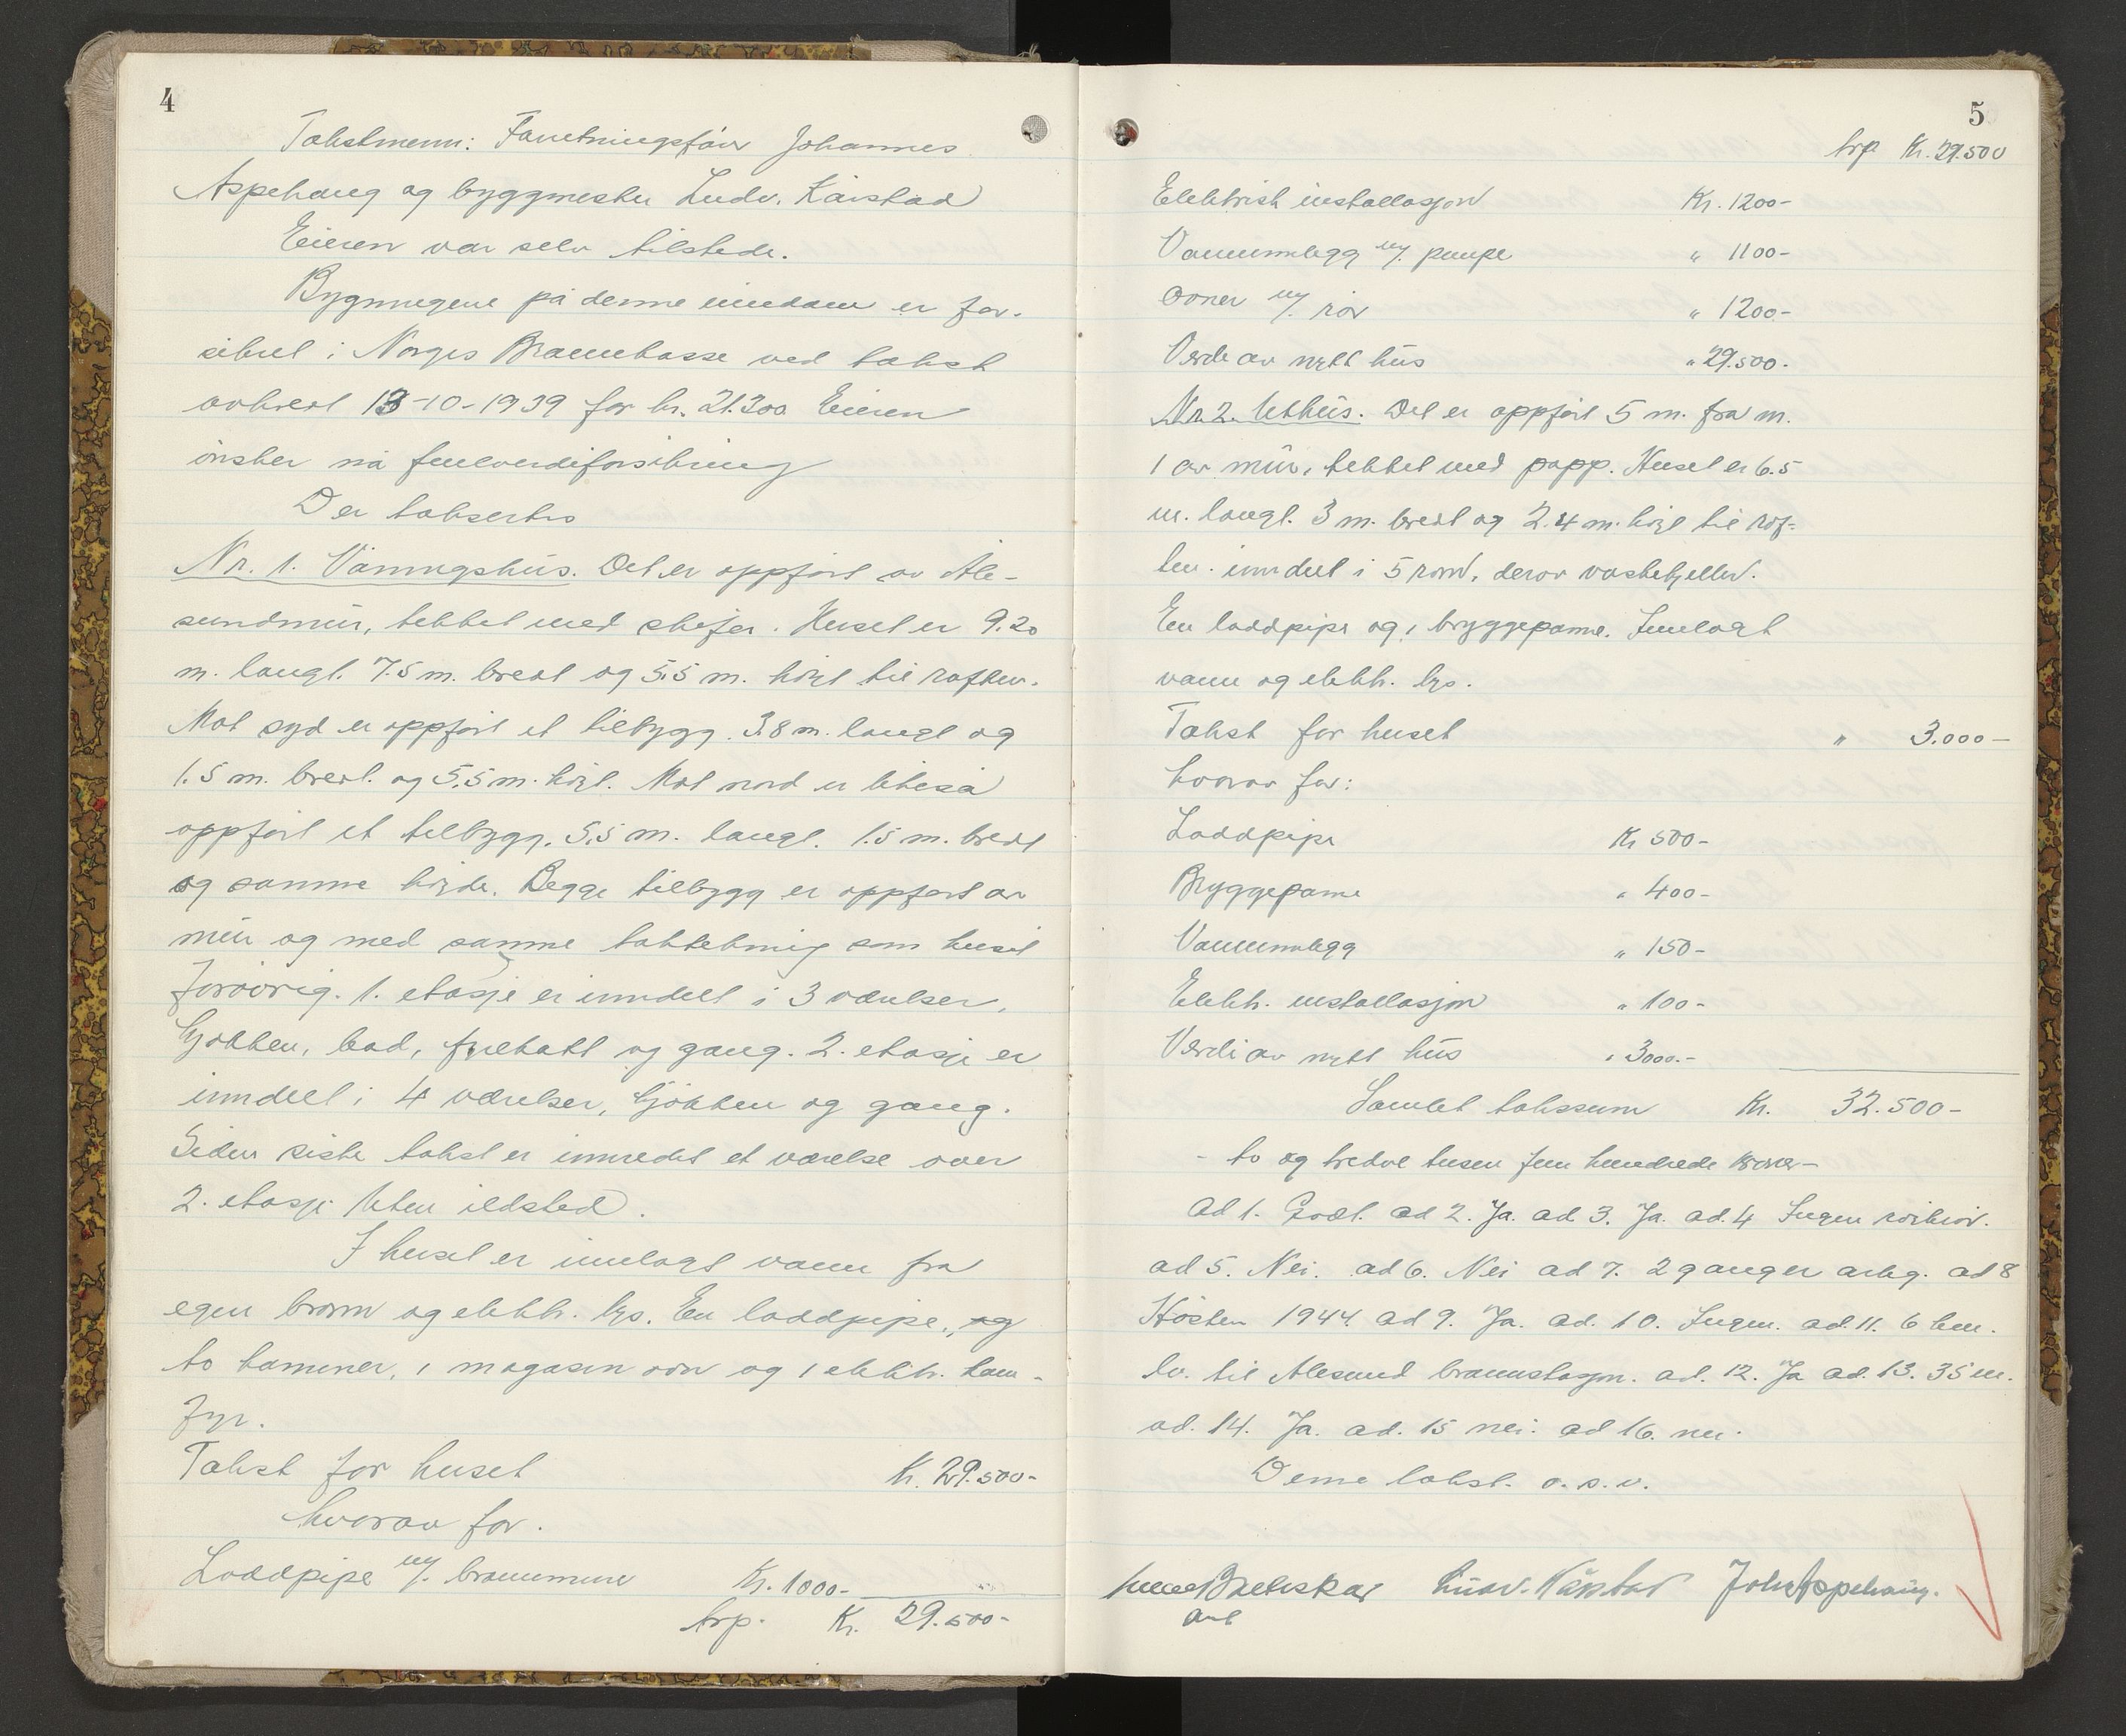 4
Takstmenn: Forretningsfører Johannes
Aspehaug og byggmester Ludv. Kårstad
Eieren var selv tilstede.
Bygningene på denne eiendom er for-
sikret i Norges Brannkasse ved takst
avholdt 13-10-1939 for kr. 21.300 Eieren
ønsker nå fullverdiforsikring
Der taksertes
Nr. 1. Våningshus. Det er oppført av Åle-
sundmur, tekket med skifer. Huset er 9.20
m. langt. 7.5 m. bredt og 5.5 m. høgt til raften.
Mot syd er oppført et tilbygg. 3.8 m. langt og
1.5 m. bredt. og 5.5 m. høgt. Mot nord er likeså
oppført et tilbygg. 5.5 m. langt. 1.5 m. bredt
og samme høgde. Begge tilbygg er oppført av
mur og med samme taktekning som huset
forøvrig. 1. etasje er inndelt i 3 værelser,
kjøkken, bad, frukott og gang. 2. etasje er
inndelt i 4 værelser, kjøkken og gang.
Siden siste takst er innredet et værelse over
2. etasje. Uten ildsted.
I huset er innlagt vann fra
egen brønn og elektr. lys. En loddpipe, og
to kaminer, 1 magasin ovn og 1 elektr. kom-
fyr.
Takst for huset Kr. 29.500-
hvorav for.
Loddpipe m/. brannmur Kr. 1000-
trp. Kr. 29.500-
5
trp Kr. 29.500
Elektrisk installasjon Kr. 1200-
Vanninnlegg m/. pumpe " 1100-
Ovner m/. rør " 1200-
Verdi av nytt hus " 29.500.
Nr. 2. Uthus. Det er oppført 5 m. fra nr.
1 av mur, tekket med papp. Huset er 6.5
m. langt. 3 m. bredt og 2.4 m. høgt til raf-
ten. inndelt i 5 rom, derav vaskekjeller.
En loddpipe og 1 bryggepanne. Innlagt
vann og elektr. lys.
Takst for huset " 3.000-
hvorav for:
Loddpipe Kr 500-
Bryggepanne " 400-
Vanninnlegg " 150-
Elektr. installasjon " 100-
Verdi av nytt hus " 3000.-
Samlet takssum Kr. 32.500-
- to og tredve tusen fem hundrede kroner-
Ad 1. Godt. ad 2. Ja. ad 3. Ja. ad. 4 Ingen risikor.
ad 5. Nei. ad 6. Nei ad 7. 2 ganger årlig. ad 8
Høsten 1944. ad 9. Ja. ad. 10. Ingen. ad. 11. 6 km.
tv. til Ålesund brannstasjon. ad. 12. Ja ad. 13. 35 m.
ad. 14. Ja. ad. 15 nei. ad 16. nei.
Denne takst. o.s.v.
Ludv. Kårstad Joh. Aspehaug.